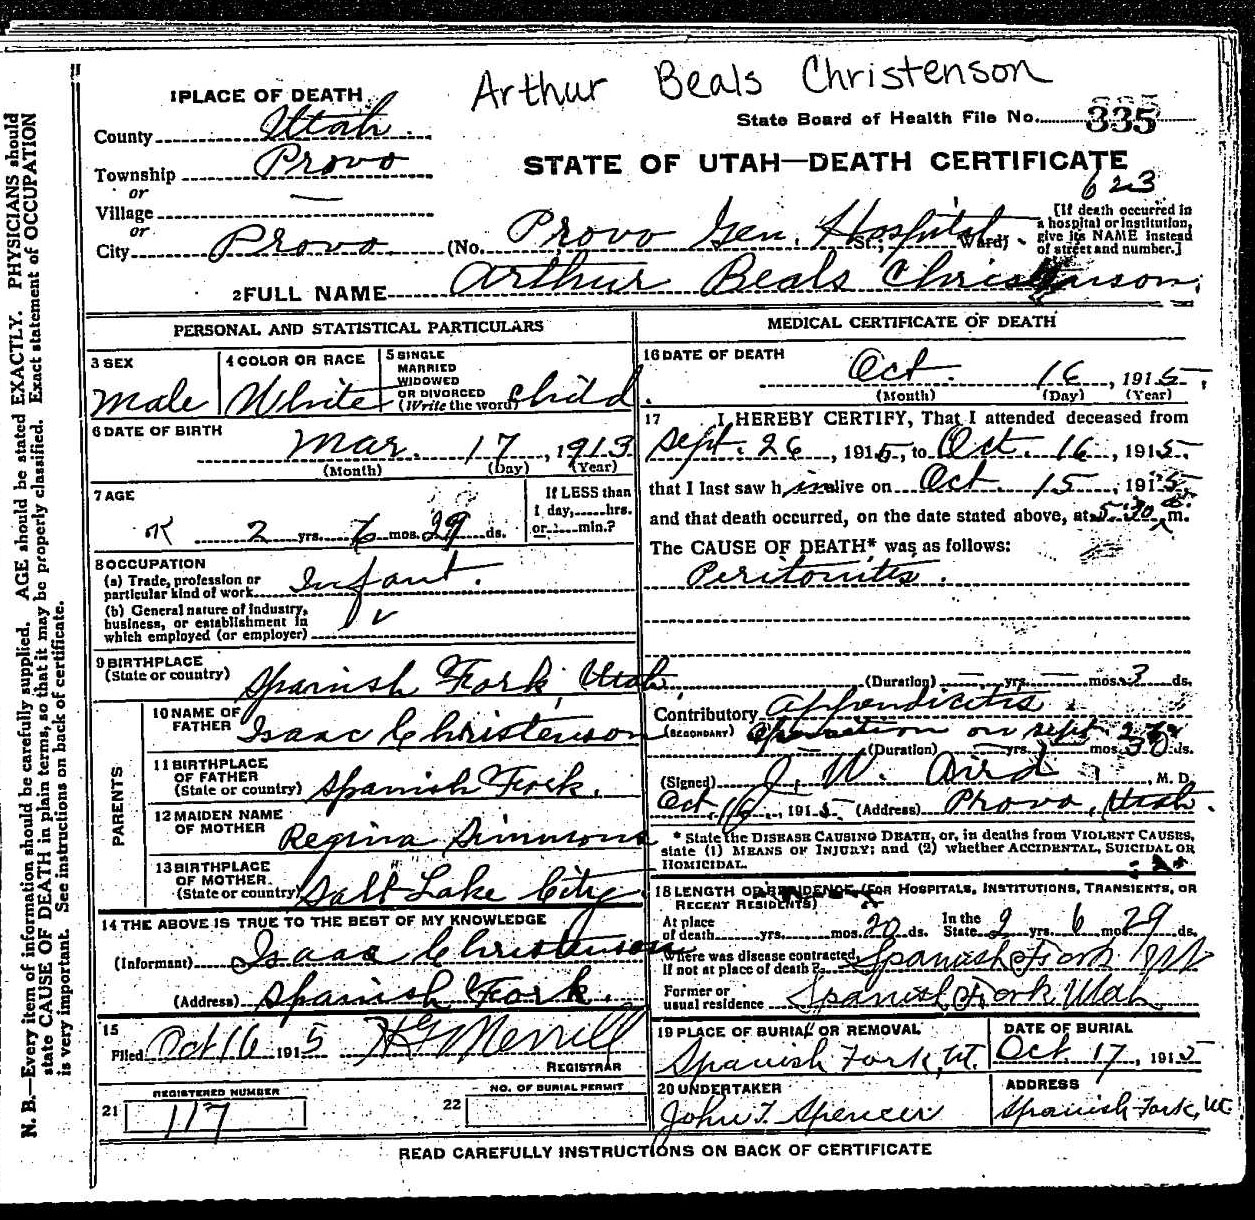 Arthur Beals Christenson
1 PLACE OF DEATH
State Board of Health File No. 335
County Utah
STATE OF UTAH—DEATH CERTIFICATE
Township Provo
623
or
Village —
or
City Provo (No. Provo Gen. Hospital St.; Ward)
[If death occurred in
a hospital or institution,
give its NAME instead
of street and number.]
2 FULL NAME Arthur Beals
PERSONAL AND STATISTICAL PARTICULARS
3 SEX
Male
4 COLOR OR RACE
White
5 SINGLE
MARRIED
WIDOWED
OR DIVORCED
(Write the word) Child.
6 DATE OF BIRTH
Mar. 17, 1913
(Month) (Day) (Year)
7 AGE
2 yrs. 6 mos. 29 ds.
If LESS than
1 day, hrs.
or min.?
8 OCCUPATION
(a) Trade, profession or
particular kind of work Infant.
(b) General nature of industry,
business, or establishment in
which employed (or employer)
9 BIRTHPLACE
(State or country) Spanish Fork, Utah.
PARENTS
10 NAME OF
FATHER Isaac Christenson
11 BIRTHPLACE
OF FATHER
(State or country) Spanish Fork.
12 MAIDEN NAME
OF MOTHER Regina Simmons
13 BIRTHPLACE
OF MOTHER
(State or country) Salt Lake City
14 THE ABOVE IS TRUE TO THE BEST OF MY KNOWLEDGE
(Informant) Isaac Christenson
(Address) Spanish Fork.
15
Filed Oct 16 1915 HG Merrill
REGISTRAR
REGISTERED NUMBER
21 117
NO. OF BURIAL PERMIT
22
MEDICAL CERTIFICATE OF DEATH
16 DATE OF DEATH
Oct. 16, 1915,
(Month) (Day) (Year)
17 I HEREBY CERTIFY, That I attended deceased from
Sept. 26, 1915, to Oct. 16, 1915.
that I last saw him alive on Oct. 15, 1915
and that death occurred, on the date stated above, at 5:30 a. m.
The CAUSE OF DEATH* was as follows:
Peritonitis.
(Duration) — yrs. — mos. 3 ds.
Contributory Appendicitis
(SECONDARY) Operation on Sept. 26
(Duration) — yrs. — mos. ds.
(Signed) J. W. Aird, M. D.
Oct. 16, 1915. (Address) Provo, Utah.
* State the DISEASE CAUSING DEATH, or, in deaths from VIOLENT CAUSES,
state (1) MEANS OF INJURY; and (2) whether ACCIDENTAL, SUICIDAL OR
HOMICIDAL.
18 LENGTH OF RESIDENCE (FOR HOSPITALS, INSTITUTIONS, TRANSIENTS, OR
RECENT RESIDENTS)
At place
of death yrs. mos. 20 ds. In the
State 2 yrs. 6 mos 29 ds.
Where was disease contracted,
if not at place of death? Spanish Fork Ut
Former or
usual residence Spanish Fork Utah
19 PLACE OF BURIAL OR REMOVAL
Spanish Fork, Ut.
DATE OF BURIAL
Oct. 17, 1915
20 UNDERTAKER
John T. Spencer
ADDRESS
Spanish Fork, Ut.
READ CAREFULLY INSTRUCTIONS ON BACK OF CERTIFICATE
N. B.—Every item of information should be carefully supplied. AGE should be stated EXACTLY. PHYSICIANS should
state CAUSE OF DEATH in plain terms, so that it may be properly classified. Exact statement of OCCUPATION
is very important. See instructions on back of certificate.